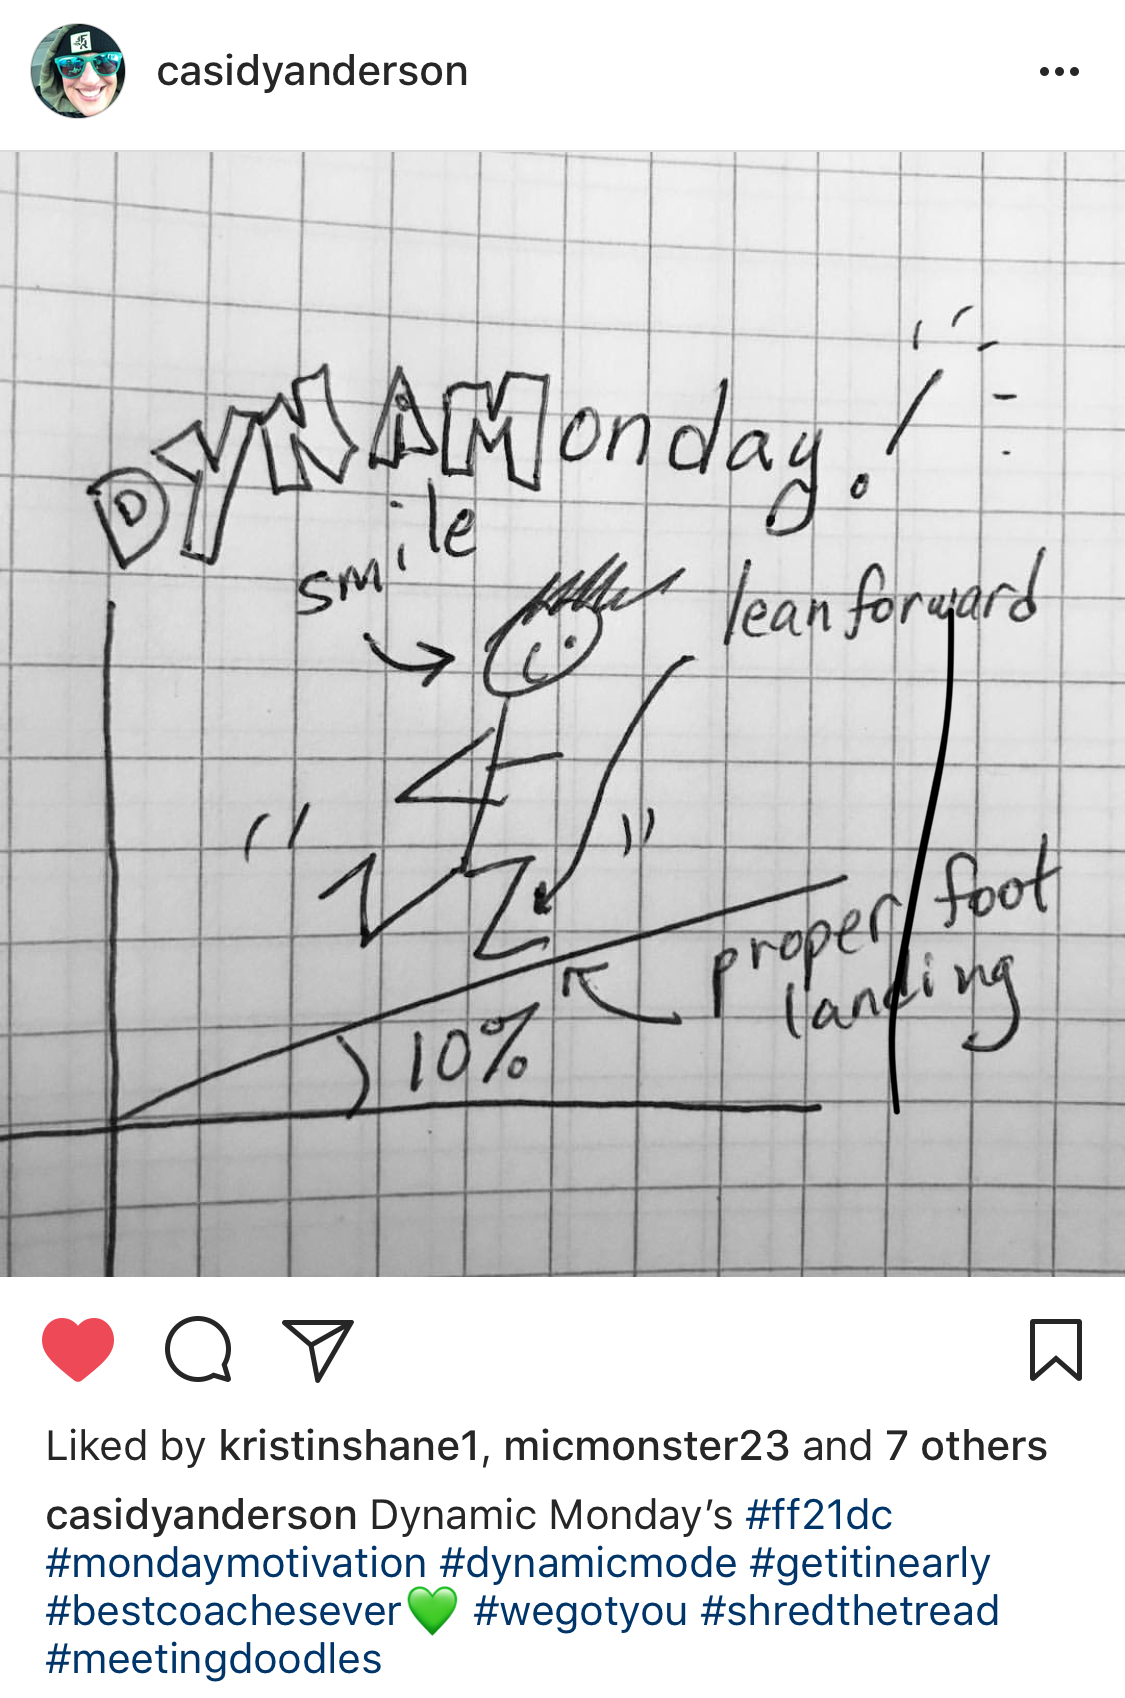 casidyanderson
DYNAMonday!
smile
lean forward
proper foot
landing
10%
Liked by kristinshane1, micmonster23 and 7 others
casidyanderson Dynamic Monday’s #ff21dc
#mondaymotivation #dynamicmode #getitinearly
#bestcoachesever💚 #wegotyou #shredthetread
#meetingdoodles